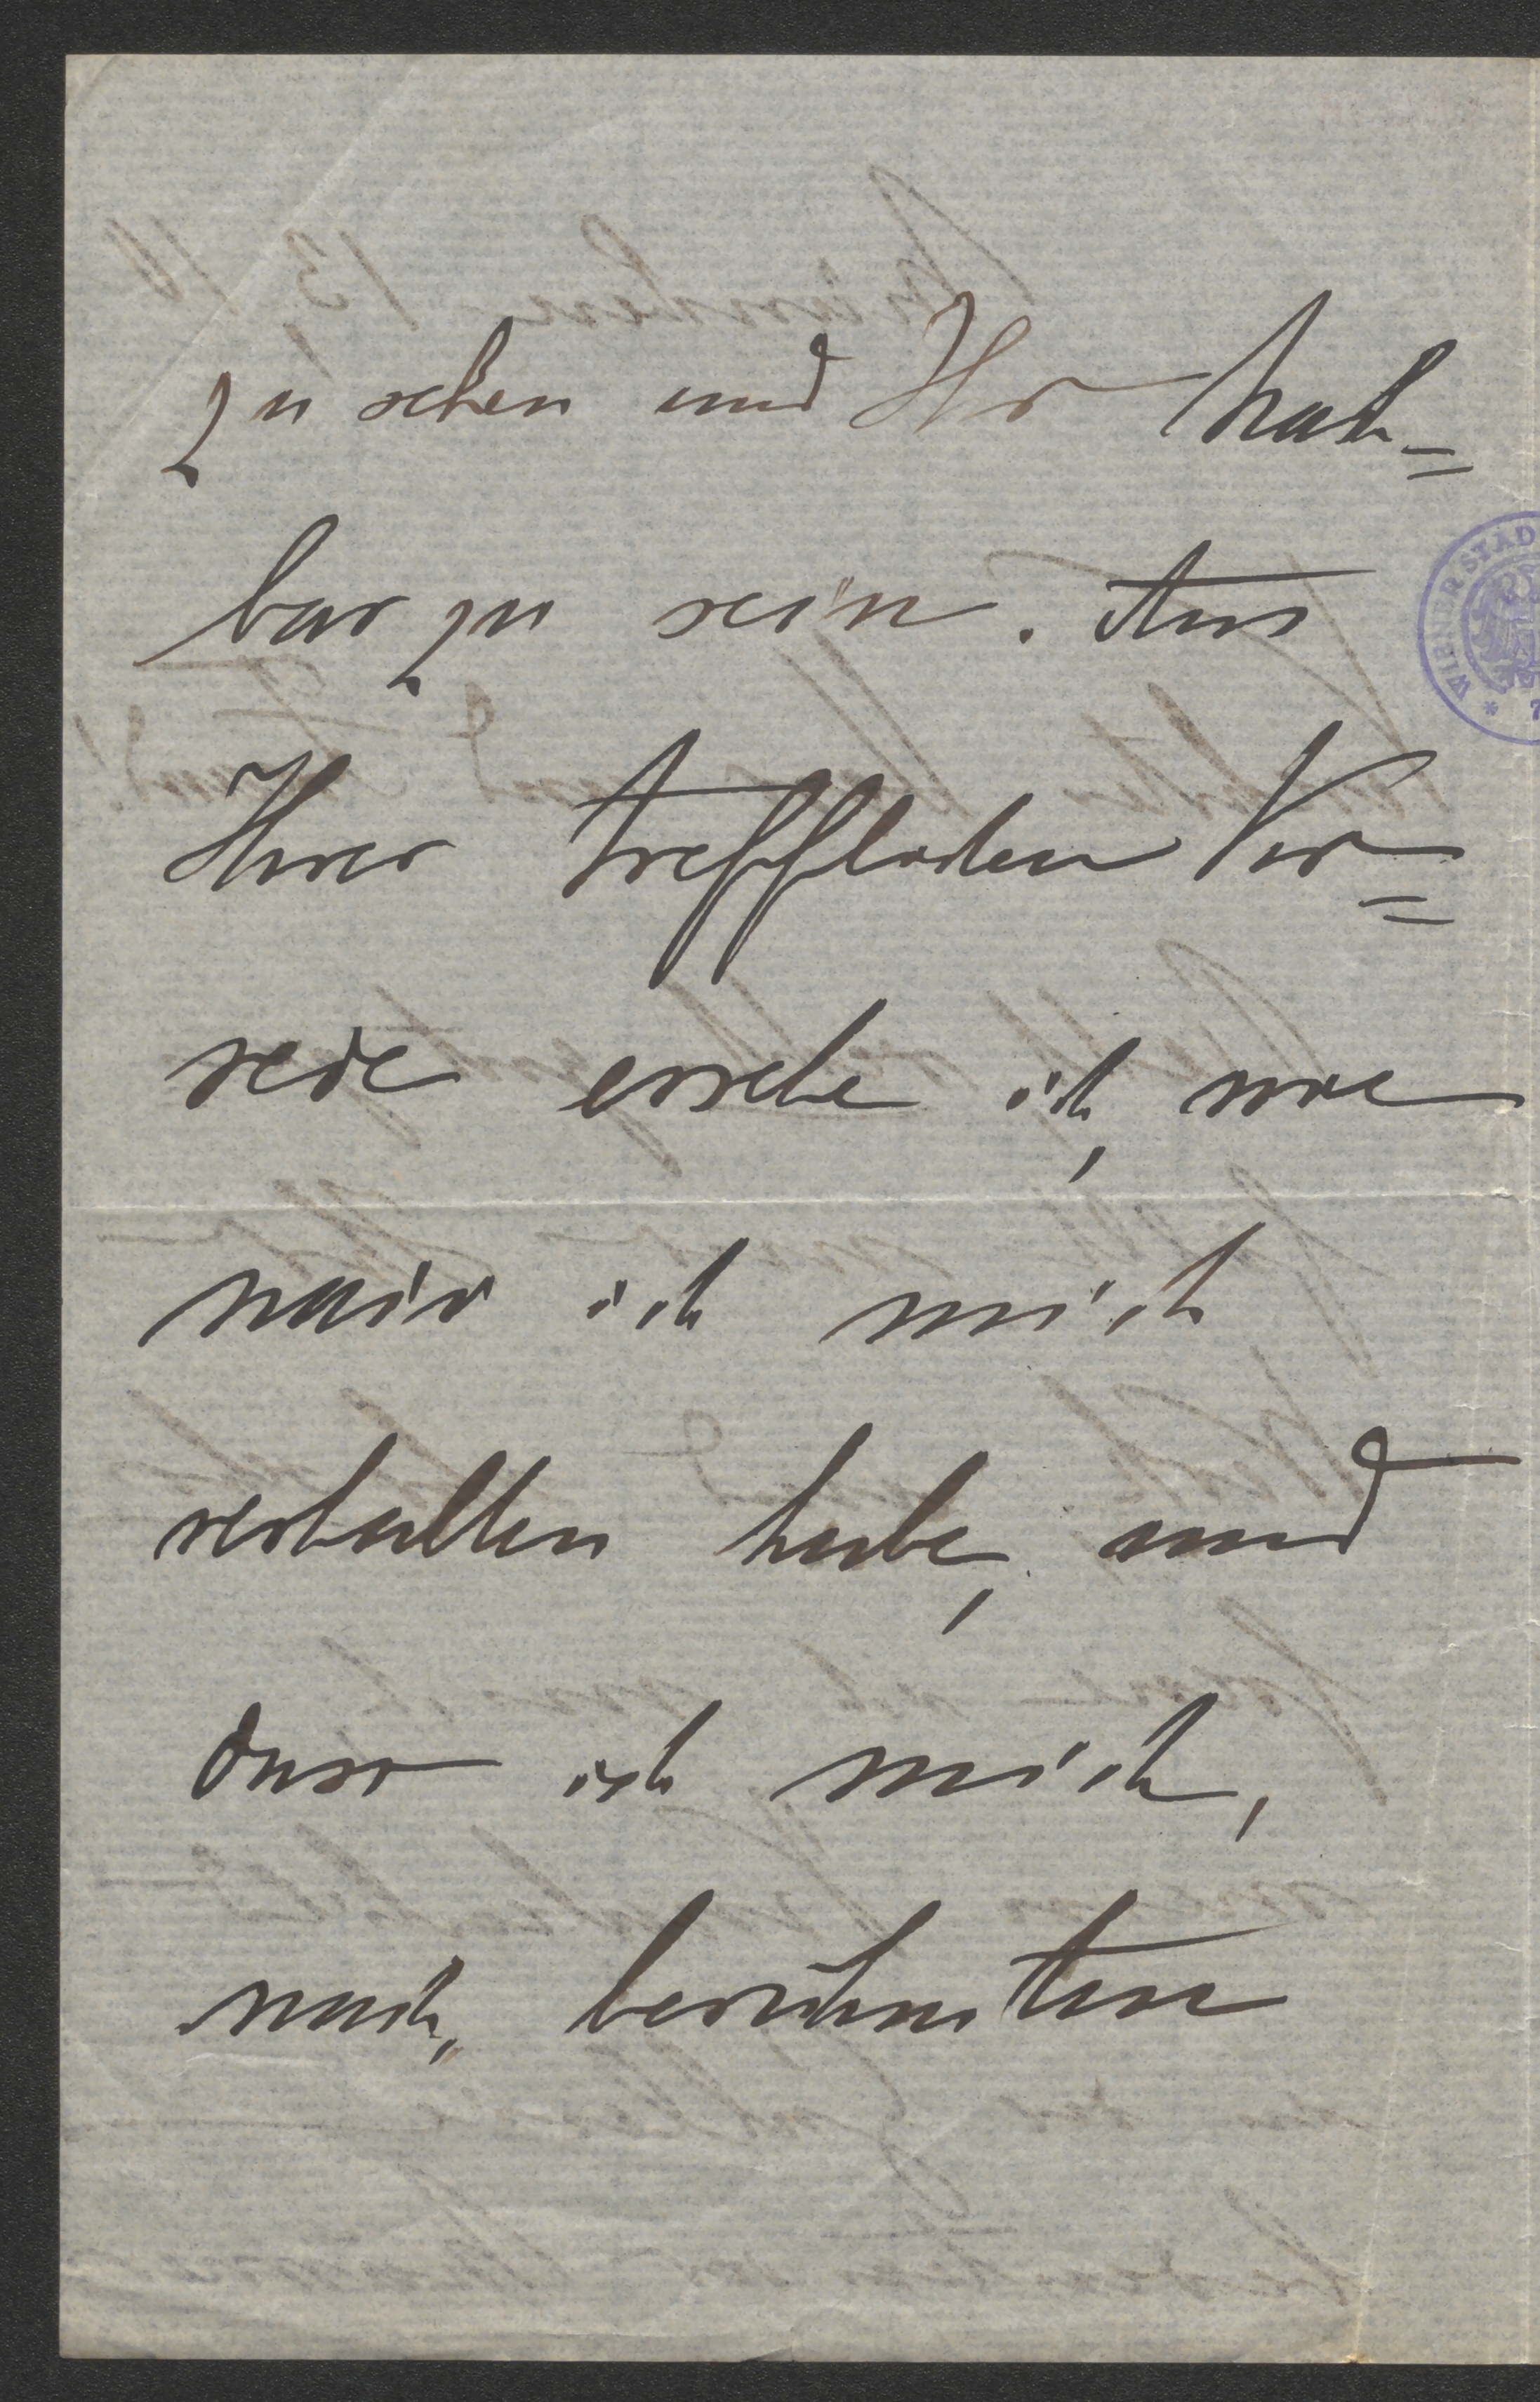 zu sehen und Ihr Nach=
bar zu sein. Aus
Ihrer trefflichen Vor=
rede ersehe ich, wie
naiv ich mich
verhalten habe, und
dass ich mich,
nach, berühmten
WIENER STAD